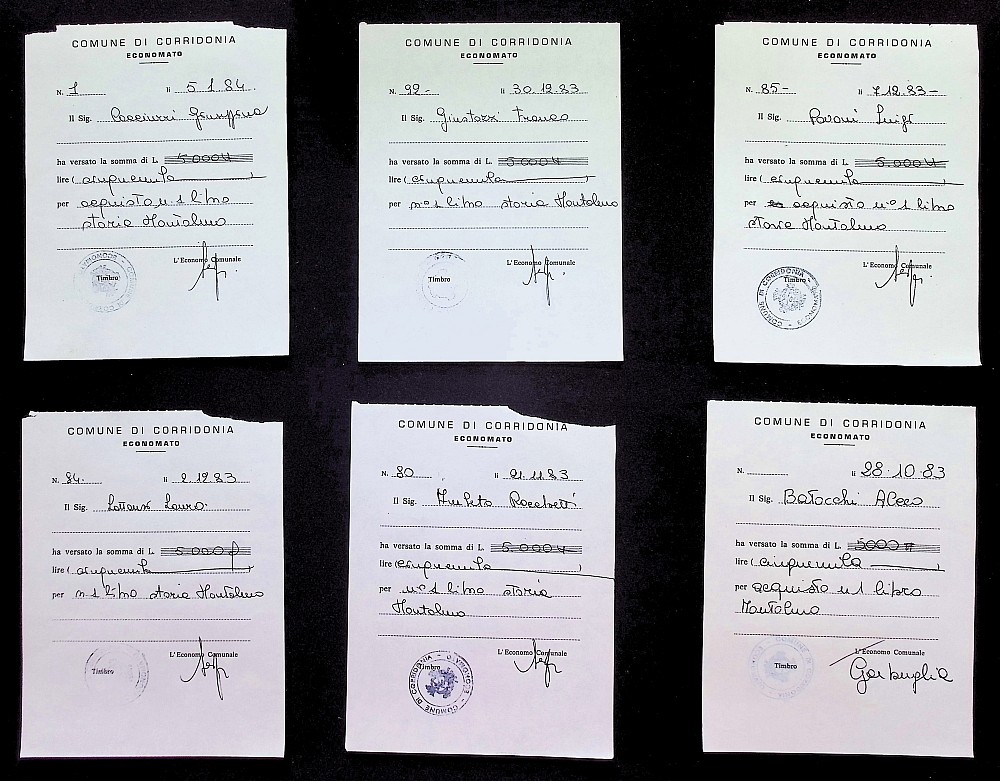 COMUNE DI CORRIDONIA
ECONOMATO
N. 1 li 5.1.84.
Il Sig.
ha versato la somma di L. 5.000
lire ( cinquemila )
per acquisto n. 1 libro
storia Montolmo
L'Economo Comunale
Timbro
COMUNE DI CORRIDONIA
ECONOMATO
N. 92- li 30.12.83
Il Sig. Giustozzi Franco
ha versato la somma di L. 5.000
lire ( cinquemila )
per n° 1 libro storia Montolmo
L'Economo Comunale
Timbro
COMUNE DI CORRIDONIA
ECONOMATO
N. 85- li 7.12.83-
Il Sig. Pavoni Luigi
ha versato la somma di L. 5.000
lire ( cinquemila )
per acquisto n° 1 libro
storia Montolmo
L'Economo Comunale
Timbro
COMUNE DI CORRIDONIA - ECONOMATO -
COMUNE DI CORRIDONIA
ECONOMATO
N. 84. li 2.12.83
Il Sig. Lattanzi Lauro.
ha versato la somma di L. 5.000
lire ( cinquemila )
per n 1 libro storia Montolmo
L'Economo Comunale
Timbro
COMUNE DI CORRIDONIA
ECONOMATO
N. 80 li 21.11.83
Il Sig.
ha versato la somma di L. 5.000
lire ( cinquemila )
per n° 1 libro storia
Montolmo
L'Economo Comunale
Timbro
COMUNE DI CORRIDONIA - ECONOMATO -
COMUNE DI CORRIDONIA
ECONOMATO
N. li 28.10.83
Il Sig. Batocchi Aleo
ha versato la somma di L. 5000
lire ( cinquemila )
per acquisto n 1 libro
Montolmo
L'Economo Comunale
Timbro
Garbuglia